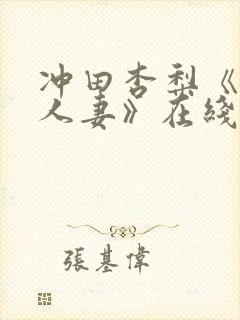 冲田杏梨《
人妻》在线
張基偉